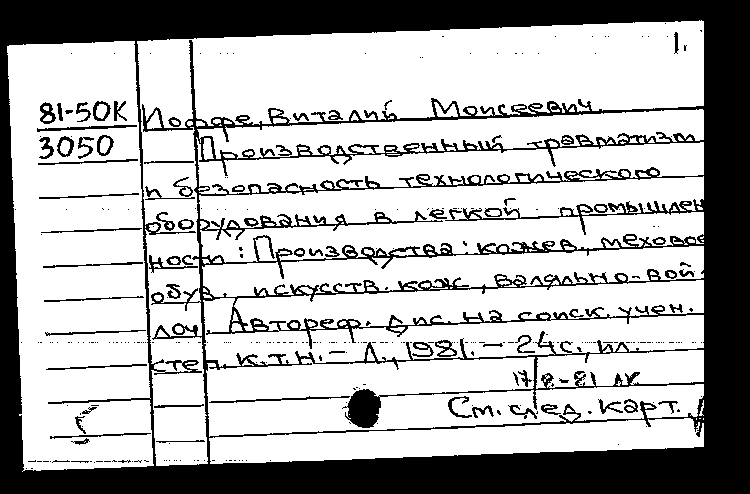 1.
81-50К Иоффе, Виталий Моисеевич.
3050 Производственный травматизм
и безопасность технологического
оборудования в легкой промышлен
ности : Производства : кожев., мехово
обув. искусств. кож, валяльно-вой-
лоч. Автореф. дис. на соиск. учен.
степ. к.т.н. - Л., 1981. - 24с., ил.
17/8-81
См. след. карт.